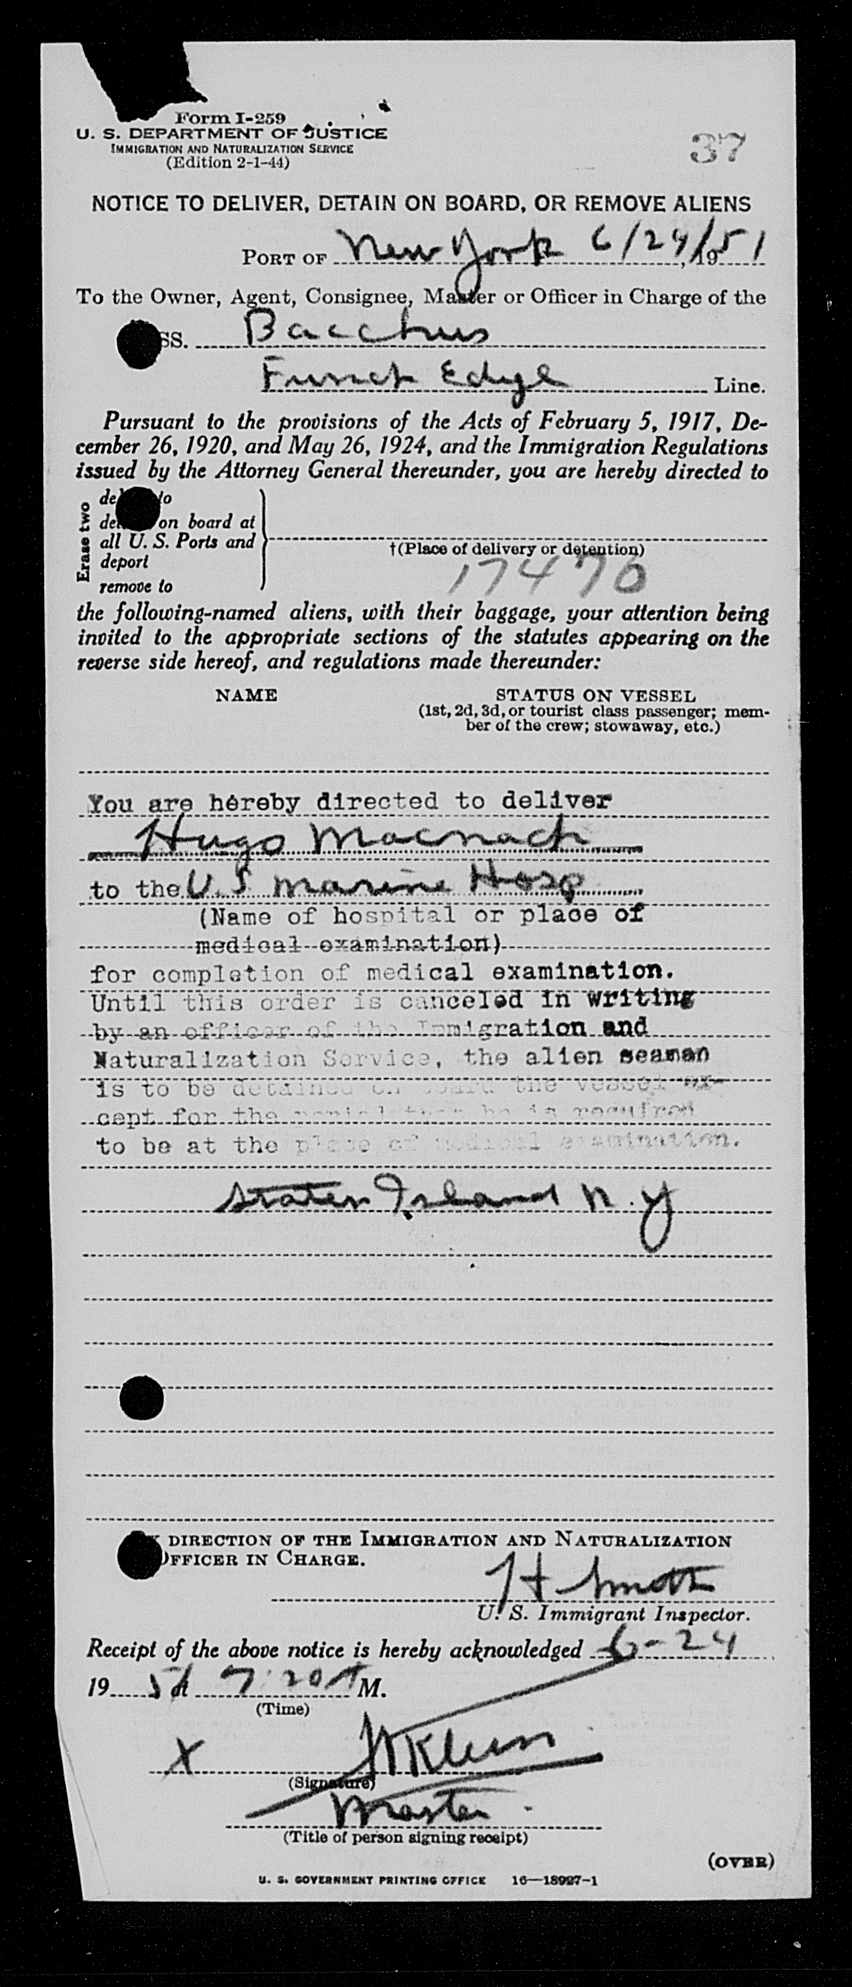 Form I-259
U. S. DEPARTMENT OF JUSTICE
IMMIGRATION AND NATURALIZATION SERVICE
(Edition 2-1-44)
37
NOTICE TO DELIVER, DETAIN ON BOARD, OR REMOVE ALIENS
PORT OF New York 6/24/, 1951
To the Owner, Agent, Consignee, Master or Officer in Charge of the
SS. Bacchus
Funch Edye Line.
Pursuant to the provisions of the Acts of February 5, 1917, De-
cember 26, 1920, and May 26, 1924, and the Immigration Regulations
issued by the Attorney General thereunder, you are hereby directed to
Erase two
to
on board at
all U. S. Ports and
deport
remove to
†(Place of delivery or detention)
17470
the following-named aliens, with their baggage, your attention being
invited to the appropriate sections of the statutes appearing on the
reverse side hereof, and regulations made thereunder:
NAME STATUS ON VESSEL
(1st, 2d, 3d, or tourist class passenger; mem-
ber of the crew; stowaway, etc.)
You are hereby directed to deliver
Hugo Macnach
to the U.S Marine Hosp
(Name of hospital or place of
medical examination)
for completion of medical examination.
Until this order is canceled in writing
by an officer of the Immigration and
Naturalization Service, the alien seaman
is to be detained on board the vessel ex-
cept for the period that he is required
to be at the place of medical examination.
Staten Island N.Y
DIRECTION OF THE IMMIGRATION AND NATURALIZATION
OFFICER IN CHARGE.
H Smith
U. S. Immigrant Inspector.
Receipt of the above notice is hereby acknowledged 6-24
1951 7:20 A M.
(Time)
X Klein
(Signature)
Master.
(Title of person signing receipt)
(OVER)
U. S. GOVERNMENT PRINTING OFFICE 16—18927-1